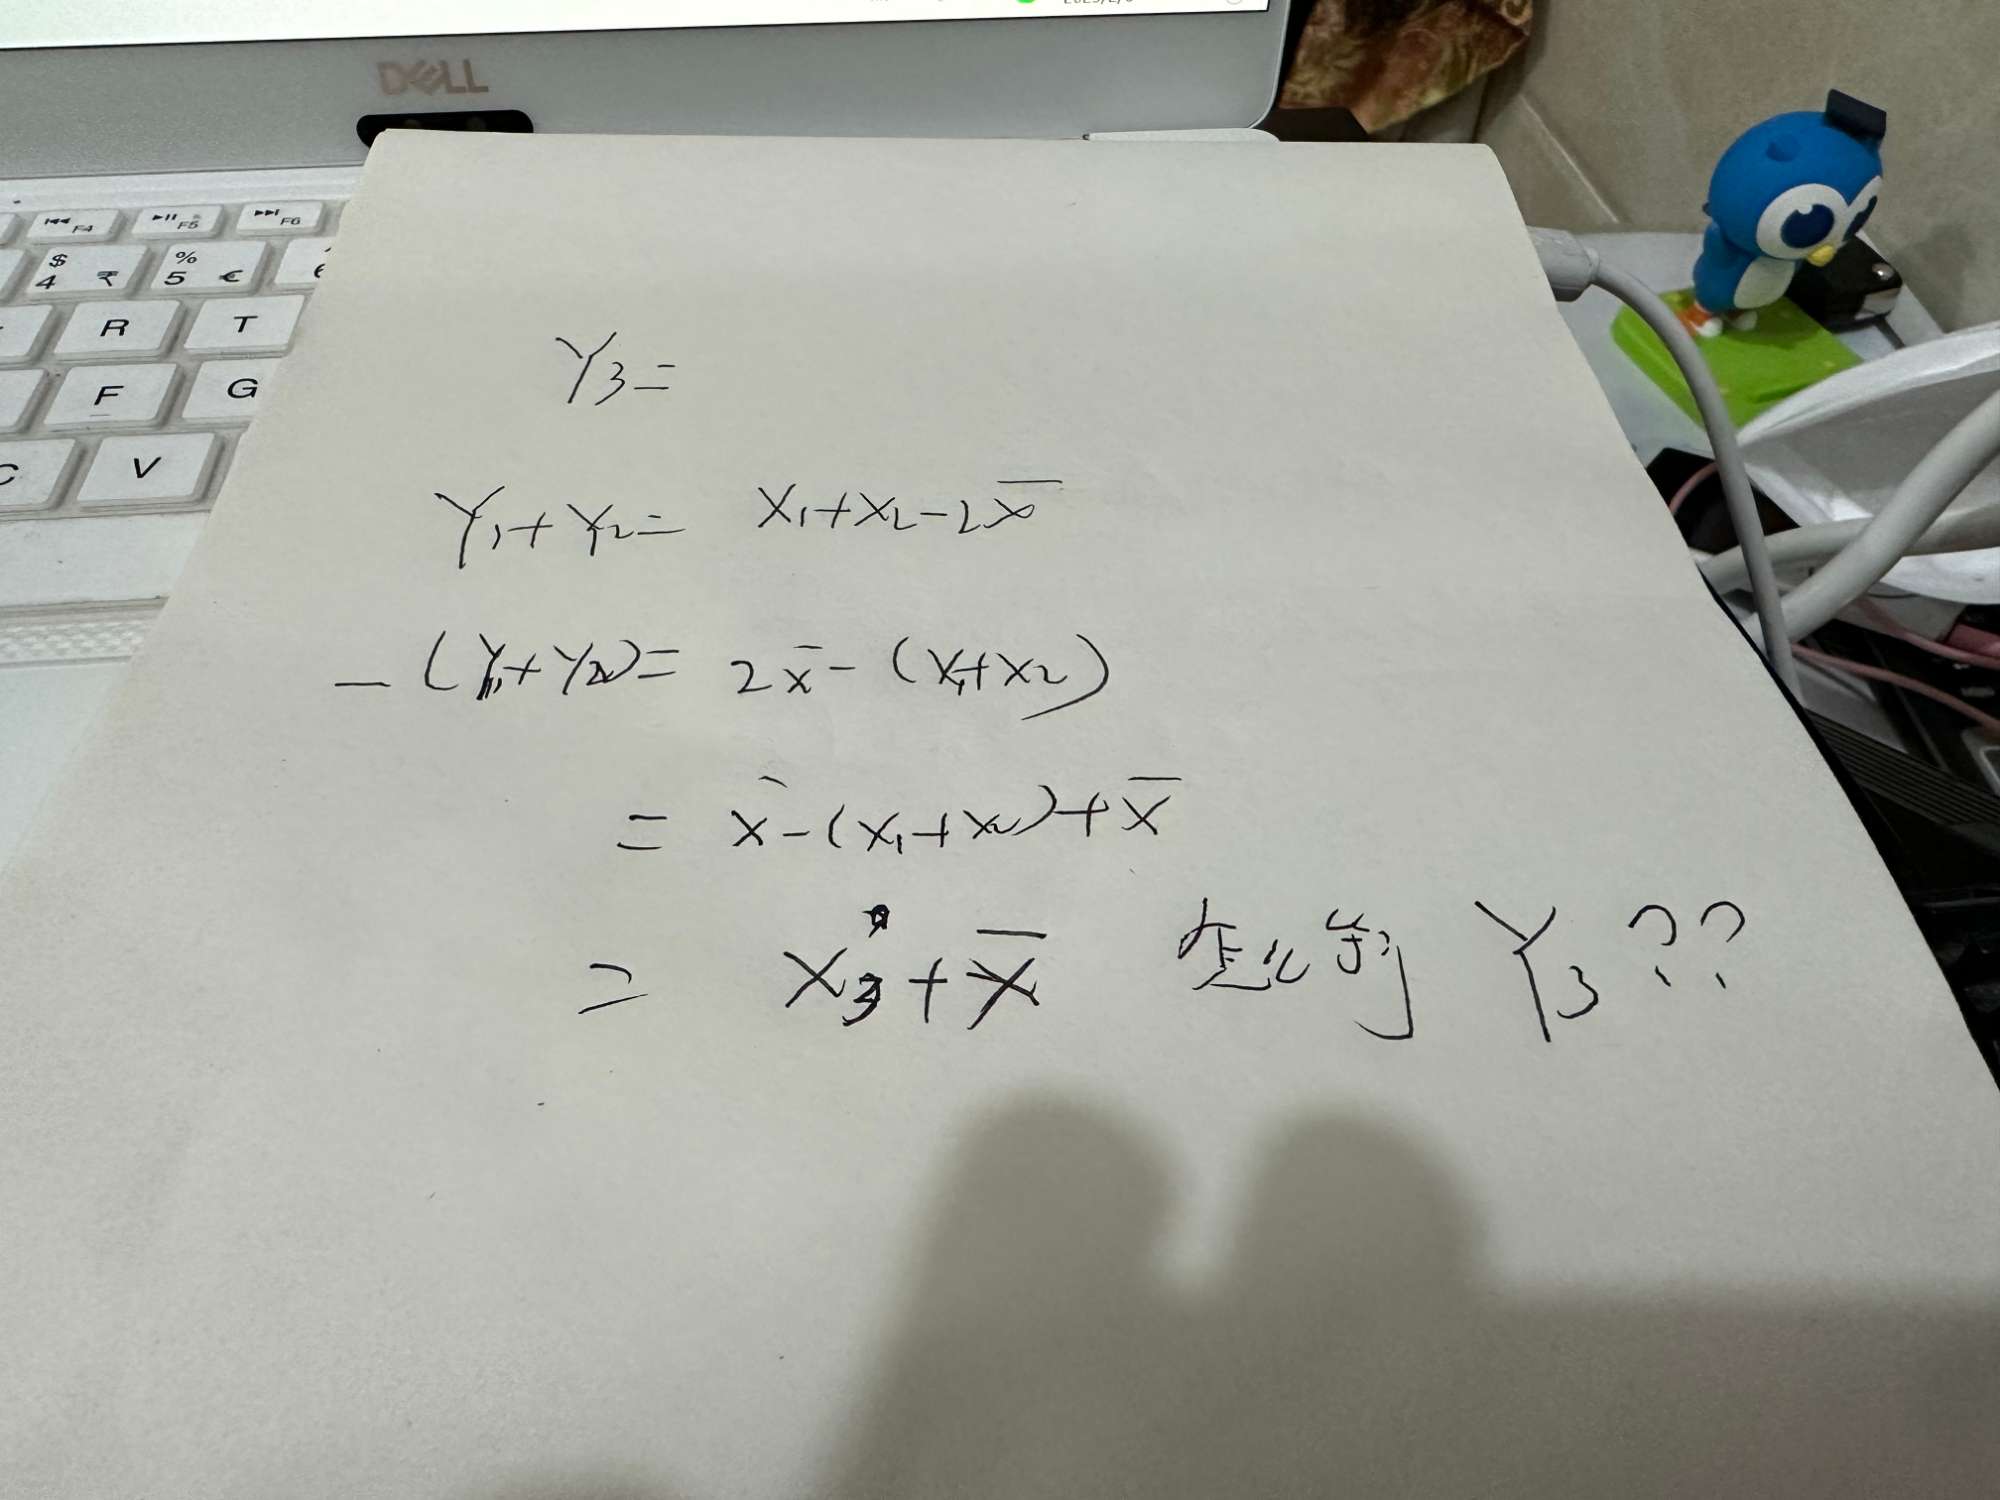 DELL
F4 F5 F6
$ 4 ₹ % 5 € 6
R T
F G
C V
Y₃=
Y₁+Y₂= X₁+X₂-2x̄
-(Y₁+Y₂)= 2x̄-(X₁+X₂)
= x̄-(X₁+X₂)+x̄
= X₃+x̄ 怎么等 Y₃??